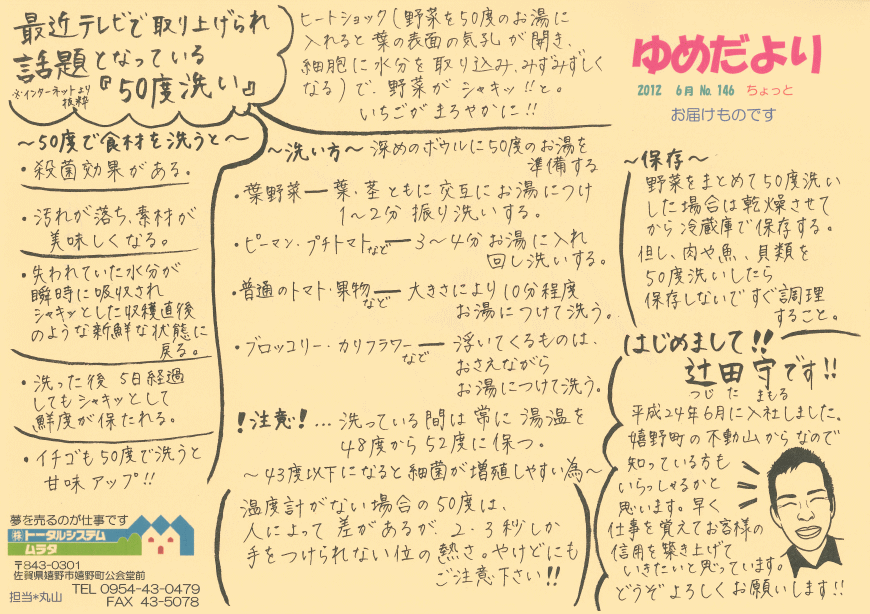 最近テレビで取り上げられ
話題となっている
※インターネットより
抜粋
『50度洗い』
ヒートショック(野菜を50度のお湯に
入れると葉の表面の気孔が開き、
細胞に水分を取り込み、みずみずしく
なる)で、野菜がシャキッ!!と。
いちごがまろやかに!!
ゆめだより
2012 6月 No.146 ちょっと
お届けものです
〜50度で食材を洗うと〜
・殺菌効果がある。
・汚れが落ち、素材が
美味しくなる。
・失われていた水分が
瞬時に吸収され
シャキッとした収穫直後
のような新鮮な状態に
戻る。
・洗った後5日経過
してもシャキッとして
鮮度が保たれる。
・イチゴも50度で洗うと
甘味アップ!!
〜洗い方〜 深めのボウルに50度のお湯を
準備する
・葉野菜ー葉・茎ともに交互にお湯につけ
1〜2分振り洗いする。
・ピーマン・プチトマトなどー3〜4分お湯に入れ
回し洗いする。
・普通のトマト・果物などー大きさにより10分程度
お湯につけて洗う。
・ブロッコリー・カリフラワーなどー浮いてくるものは、
おさえながら
お湯につけて洗う。
!注意!…洗っている間は常に湯温を
48度から52度に保つ。
〜43度以下になると細菌が増殖しやすい為〜
温度計がない場合の50度は、
人によって差があるが、2、3秒しか
手をつけられない位の熱さ。やけどにも
ご注意下さい!!
〜保存〜
野菜をまとめて50度洗い
した場合は乾燥させて
から冷蔵庫で保存する。
但し、肉や魚、貝類を
50度洗いしたら
保存しないですぐ調理
すること。
はじめまして!!
辻田守です!!
つじ た まもる
平成24年6月に入社しました。
嬉野町の不動山からなので
知っている方も
いらっしゃるかと
思います。早く
仕事を覚えてお客様の
信用を築き上げて
いきたいと思っています。
どうぞよろしくお願いします!!
夢を売るのが仕事です
㈱トータルシステム
ムラタ
〒843-0301
佐賀県嬉野市嬉野町公会堂前
TEL 0954-43-0479
FAX 43-5078
担当*丸山